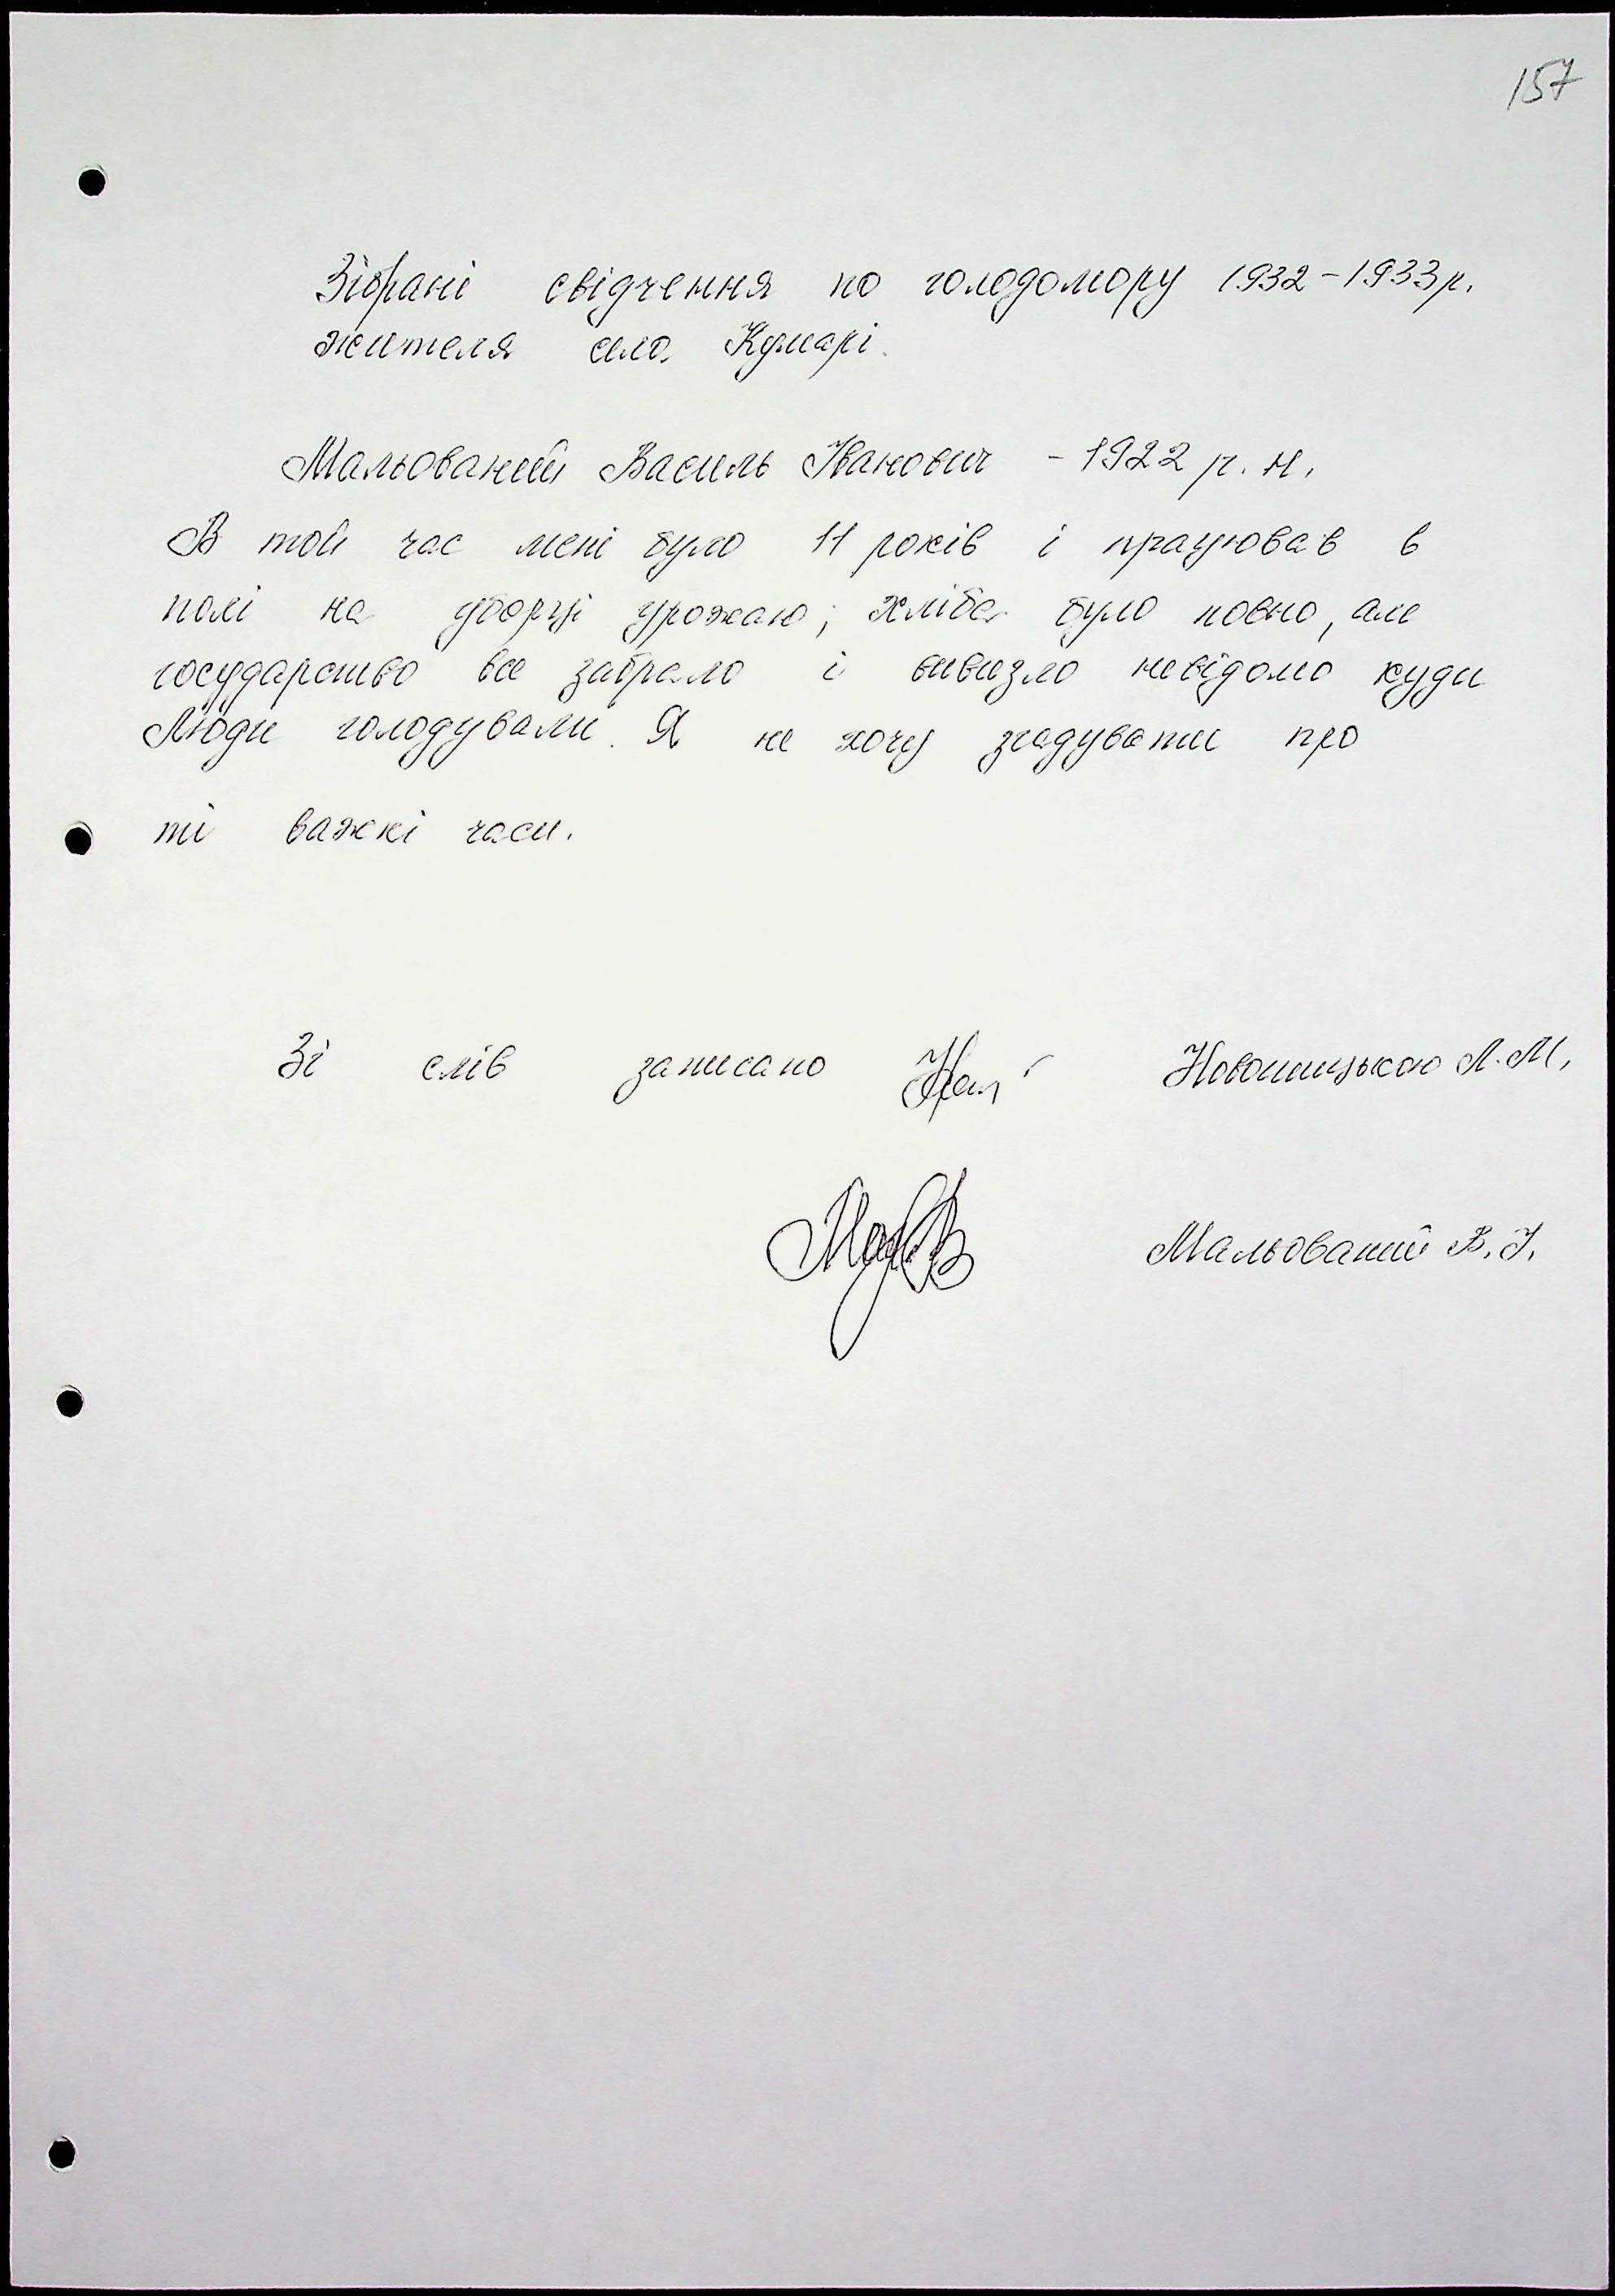 157
Зібрані свідчення по голодомору 1932-1933р.
жителя села Кумарі.
Мальований Василь Іванович - 1922 р. н.
В той час мені було 11 років і працював в
полі на уборці урожаю; хліба було повно, але
государство все забрало і вивизло невідомо куди
Люди голодували. Я не хочу згадувати про
ті важкі часи.
Зі слів записано Л. М.
Мальований В. І.